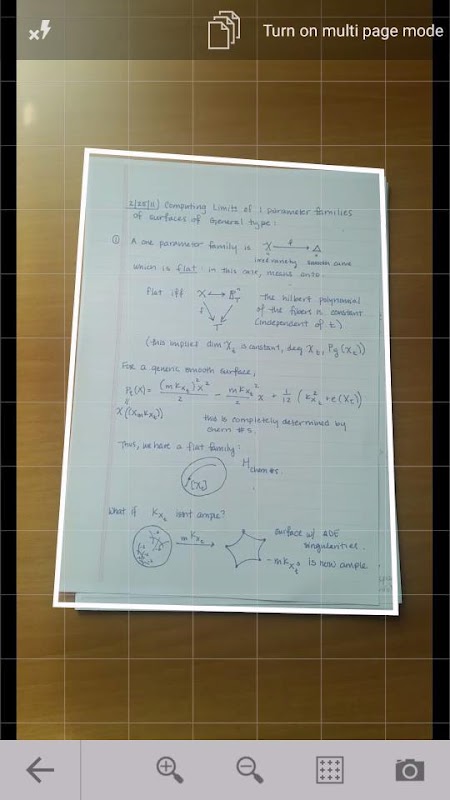 Turn on multi page mode
2/28/11) Computing Limits of 1 parameter families
of surfaces of General type:
① A one parameter family is X →f Δ
irred variety smooth curve
which is flat in this case, means onto.
Flat iff X ↔ P^n_T the hilbert polynomial
f ↘ ↙ of the fibers is constant
T (independent of t)
(this implies dim X_t is constant, deg X_t, P_g(X_t))
For a generic smooth surface,
P_t(X) = (mK_{X_t})^2 X^2 / 2 − mK_{X_t}^2 / 2 X + 1/12 (K_{X_t}^2 + e(X_t))
this is completely determined by
chern #'s.
Thus, we have a flat family:
[X_t] H_{chern #s}
What if K_{X_t} isn't ample?
mK_{X_t} → surface w/ ADE
singularities.
is now ample